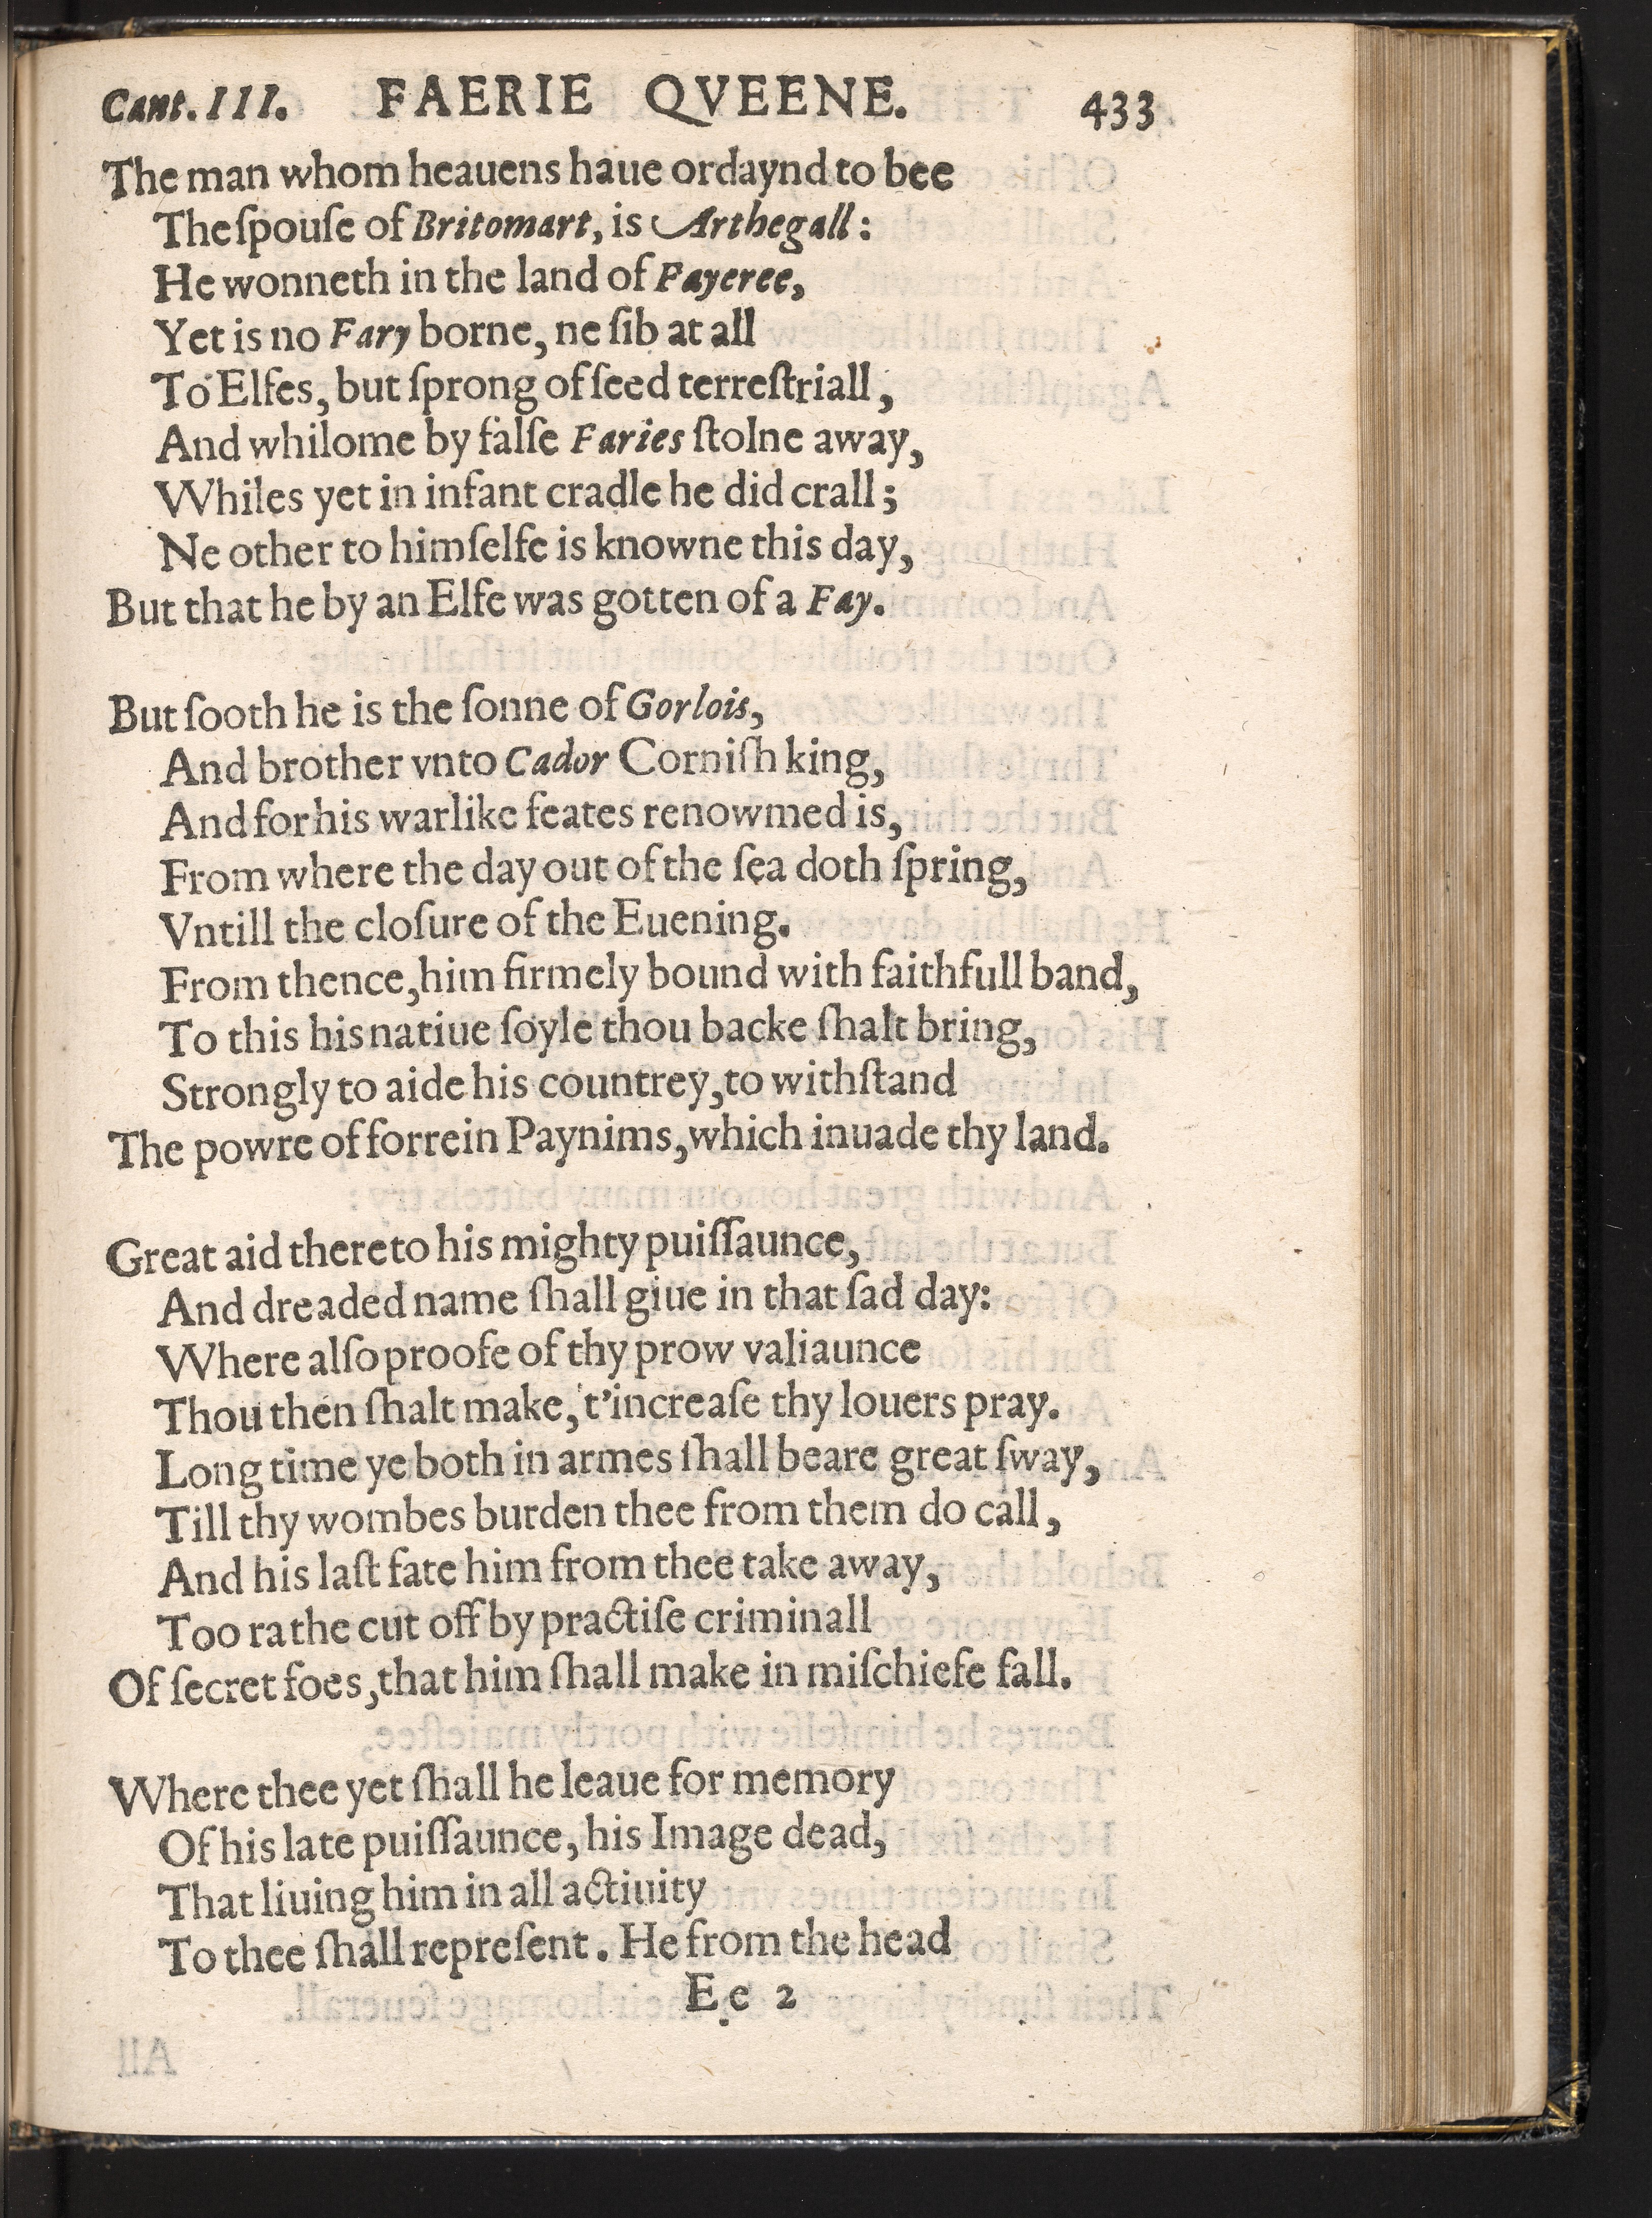 Cant. III. FAERIE QVEENE. 433
The man whom heauens haue ordaynd to bee
The ſpouſe of Britomart, is Arthegall:
He wonneth in the land of Fayeree,
Yet is no Fary borne, ne ſib at all
To Elfes, but ſprong of ſeed terreſtriall,
And whilome by falſe Faries ſtolne away,
Whiles yet in infant cradle he did crall;
Ne other to himſelfe is knowne this day,
But that he by an Elfe was gotten of a Fay.
But ſooth he is the ſonne of Gorlois,
And brother vnto Cador Corniſh king,
And for his warlike feates renowmed is,
From where the day out of the ſea doth ſpring,
Vntill the cloſure of the Euening.
From thence, him firmely bound with faithfull band,
To this his natiue ſoyle thou backe ſhalt bring,
Strongly to aide his countrey, to withſtand
The powre of forrein Paynims, which inuade thy land.
Great aid thereto his mighty puiſſaunce,
And dreaded name ſhall giue in that ſad day:
Where alſo proofe of thy prow valiaunce
Thou then ſhalt make, t'increaſe thy louers pray.
Long time ye both in armes ſhall beare great ſway,
Till thy wombes burden thee from them do call,
And his laſt fate him from thee take away,
Too rathe cut off by practiſe criminall
Of ſecret foes, that him ſhall make in miſchiefe fall.
Where thee yet ſhall he leaue for memory
Of his late puiſſaunce, his Image dead,
That liuing him in all actiuity
To thee ſhall repreſent. He from the head
Ee 2